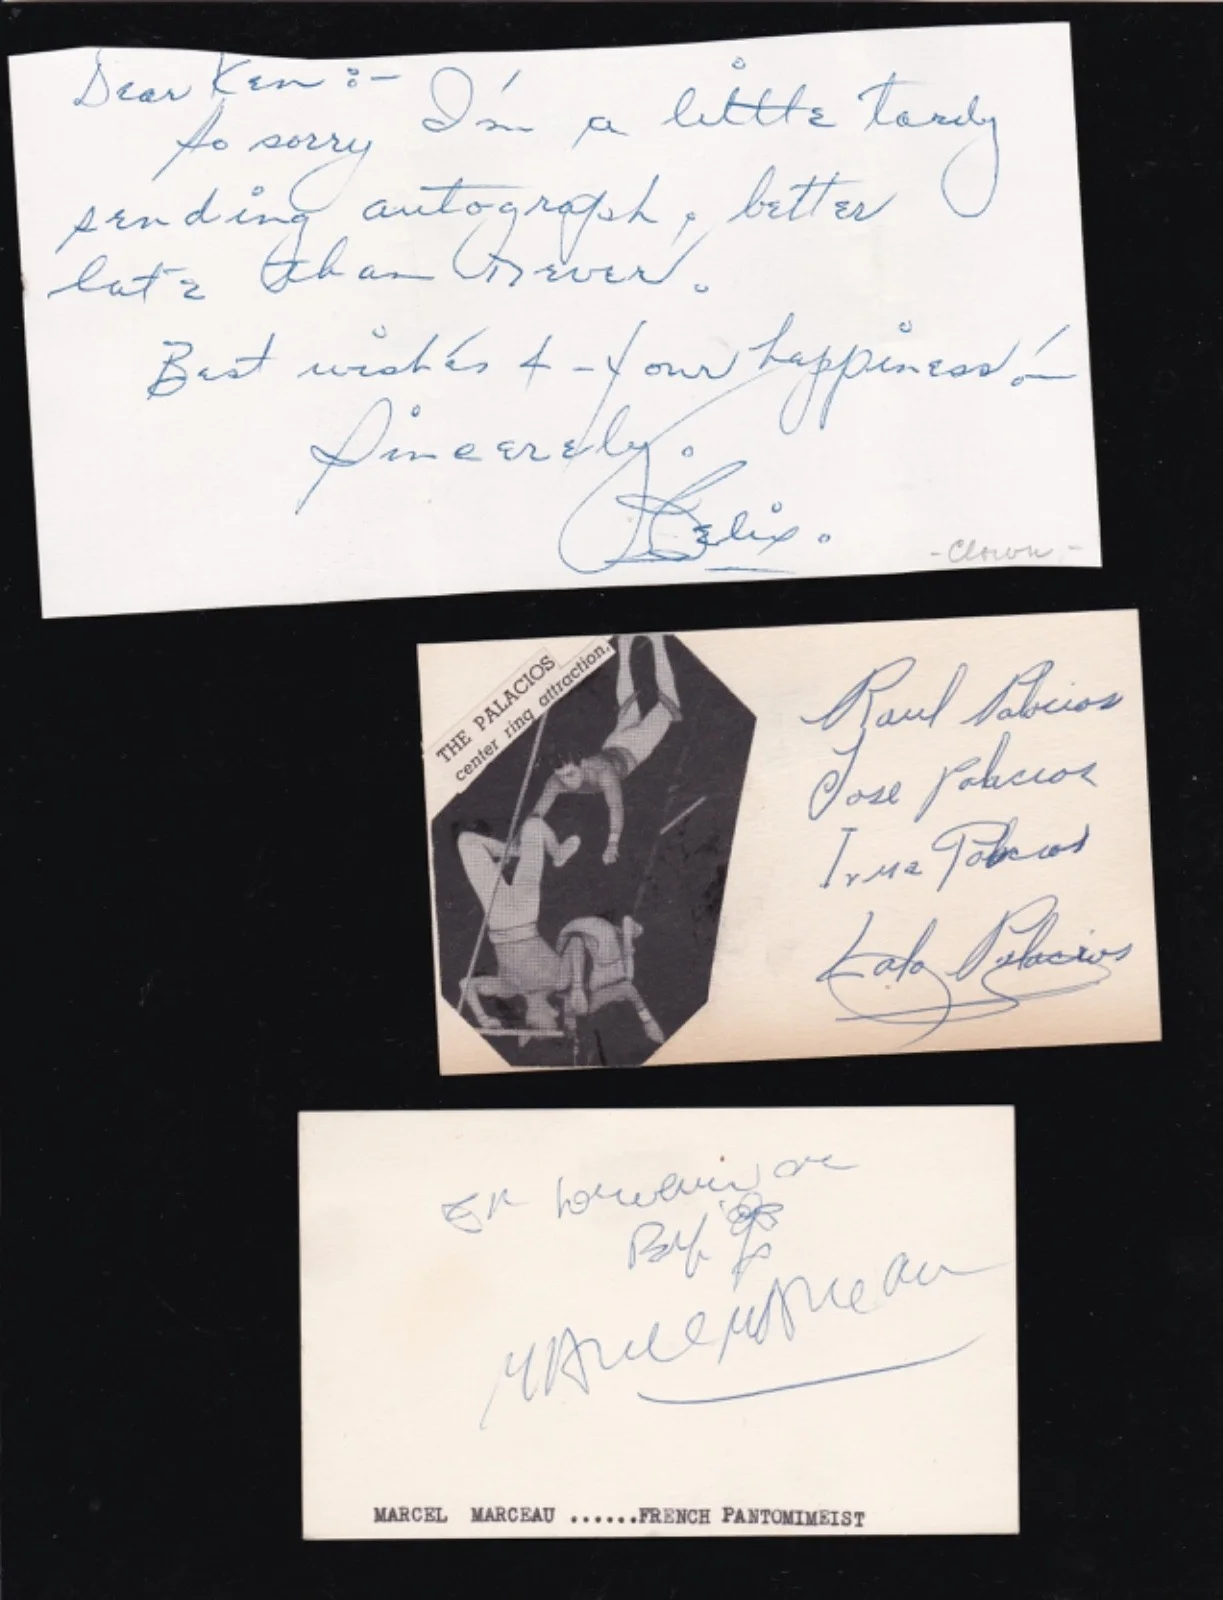 Dear Ken :-
So sorry I'm a little tardy
sending autograph, better
late than never.
Best wishes & - Your happiness!
Sincerely.
Felix.
- Clown -
THE PALACIOS
center ring attraction.
Raul Palacios
Jose Palacios
Irma Palacios
Lalo Palacios
En souvenir de
Bip
Marcel Marceau
MARCEL MARCEAU ......FRENCH PANTOMIMEIST